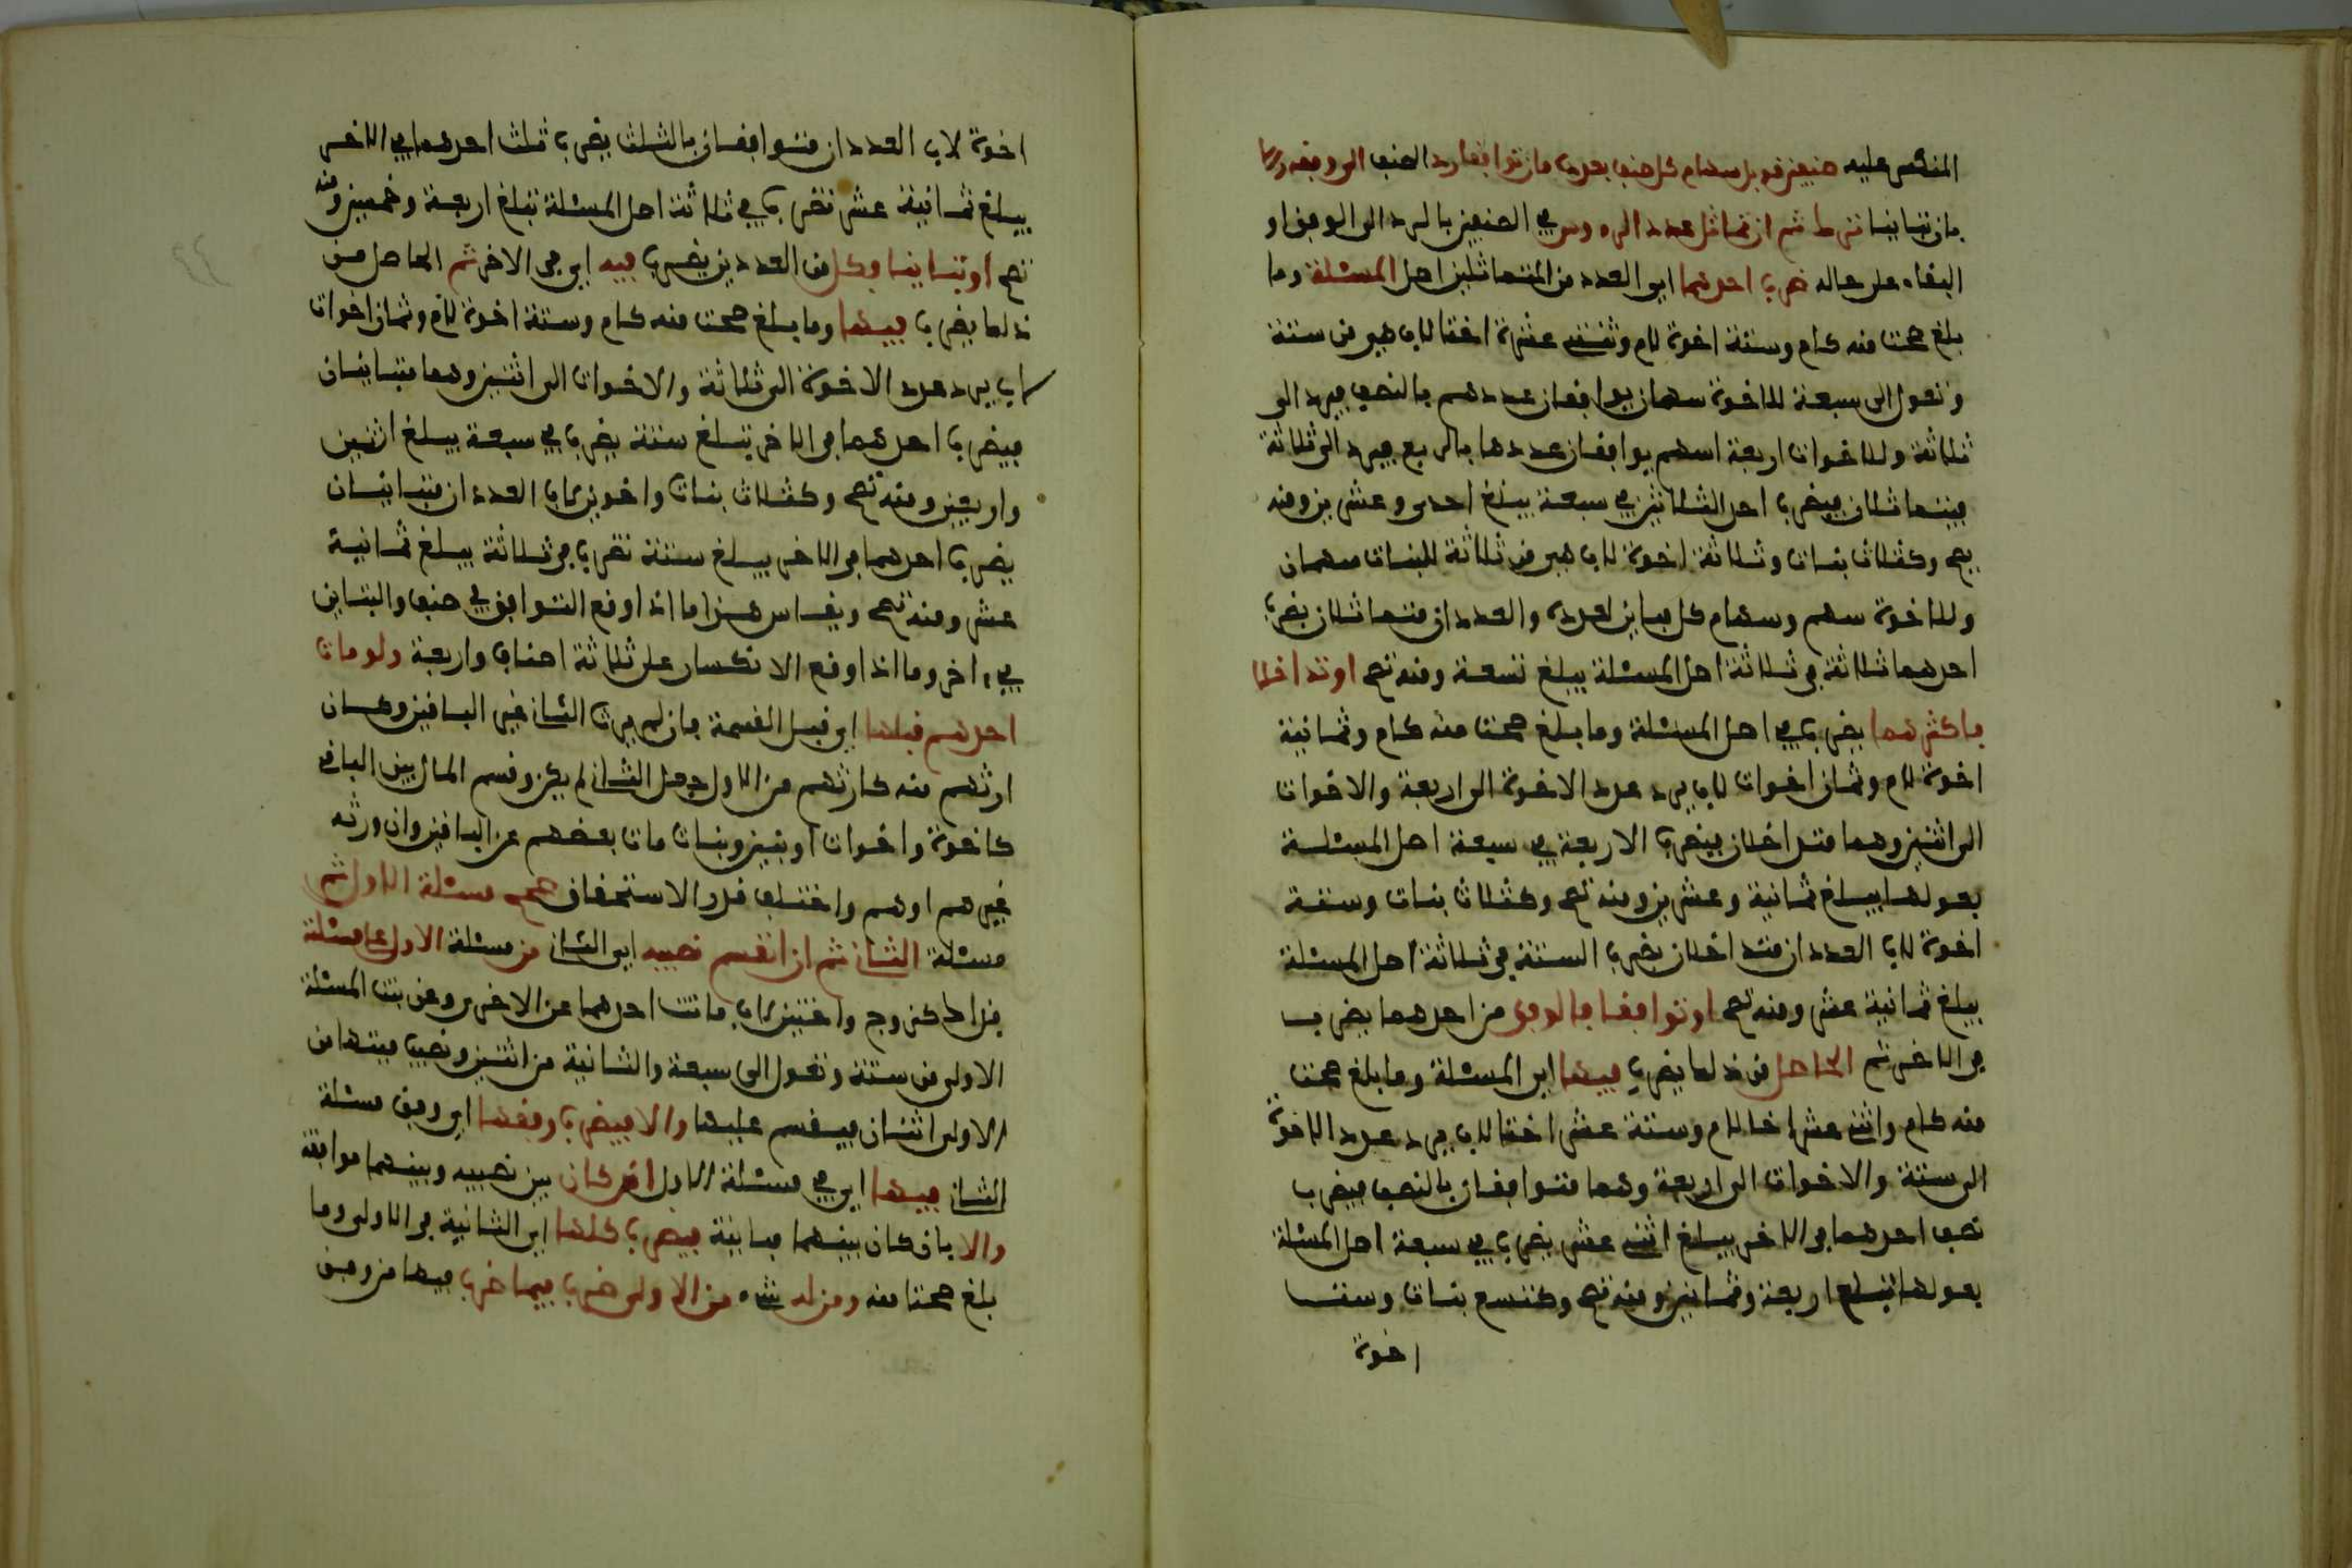 المنكسر عليه صنفين قوبل سهام كل صنف بعدده فان توافقا رد الصنف الى وفقه والا
فان تباينا ترك ثم ان تماثل عدد الرءوس في الصنفين بالرد الى الوفق او
البقاء على حاله ضرب احدهما اي العدد من المتماثلين اصل المسئلة وما
بلغ صحت منه كام وستة اخوة لام وثنتي عشرة اختا لاب هي من ستة
وتعول الى سبعة للاخوة سهمان يوافقان عددهم بالنصف فيرد الى
ثلاثة وللاخوات اربعة اسهم يوافقان عددها بالربع فيرد الى ثلاثة
فيتماثلان فيضرب احد الثلاثتين في سبعة يبلغ احدى وعشرين ومنه
يصح وكثلاث بنات وثلاثة اخوة لاب هي من ثلاثة للبنات سهمان
وللاخوة سهم وسهام كل مباين لعدده والعددان متماثلان يضرب
احدهما ثلاثة في ثلاثة اصل المسئلة يبلغ تسعة ومنه تصح او تداخلا
فاكثرهما يضرب في اصل المسئلة وما بلغ صحت منه كام وثمانية
اخوة لام وثمان اخوات لاب يرد عدد الاخوة الى اربعة والاخوات
الى اثنين وهما متداخلان فيضرب الاربعة في سبعة اصل المسئلة
بعولها يبلغ ثمانية وعشرين ومنه تصح وكثلاث بنات وستة
اخوة لاب العددان متداخلان يضرب الستة في ثلاثة اصل المسئلة
يبلغ ثمانية عشر ومنه تصح او توافقا فالوفق من احدهما يضرب
في الاخر ثم الحاصل من ذلك يضرب فيها اي المسئلة وما بلغ صحت
منه كام واثني عشر اخا لام وستة عشر اختا لاب يرد عدد الاخوة
الى ستة والاخوات الى اربعة وهما متوافقان بالنصف فيضرب
نصف احدهما في الاخر يبلغ اثني عشر يضرب في سبعة اصل المسئلة
بعولها يبلغ اربعة وثمانين ومنه تصح وكتسع بنات وست
اخوة
اخوة لاب العددان متوافقان بالثلث يضرب ثلث احدهما في الاخر
يبلغ ثمانية عشر تضرب في ثلاثة اصل المسئلة تبلغ اربعة وخمسين ومنه
تصح او تباينا فكل من العددين يضرب فيه اي في الاخر ثم الحاصل من
ذلك يضرب فيها وما بلغ صحت منه كام وستة اخوة لام وثمان اخوات
لاب يرد عدد الاخوة الى ثلاثة والاخوات الى اثنين وهما متباينان
فيضرب احدهما في الاخر تبلغ ستة يضرب في سبعة يبلغ اثنين
واربعين ومنه تصح وكثلاث بنات واخوين لاب العددان متباينان
يضرب احدهما في الاخر يبلغ ستة تضرب في ثلاثة يبلغ ثمانية
عشر ومنه تصح ويقاس بهذا ما اذا وقع التوافق في صنف والتباين
في اخر وما اذا وقع الانكسار على ثلاثة اصناف واربعة ولو مات
احدهم قبلها اي قبل القسمة فان لم يرث الثاني غير الباقين وكان
ارثهم منه كارثهم من الاول جعل الثاني لم يكن وقسم المال بين الباقي
كاخوة واخوات او بنين وبنات مات بعضهم عن الباقين وان ورثه
غيرهم او هم واختلف قدر الاستحقاق صحح مسئلة الاول ثم
مسئلة الثاني ثم ان انقسم نصيبه اي الثاني من مسئلة الاول على مسئلته
فذاك كزوج واختين لاب ماتت احدهما عن الاخرى وعن بنت المسئلة
الاولى من ستة وتعول الى سبعة والثانية من اثنين ونصيب ميتها من
الاولى اثنان فيقسم عليها والا فيضرب وفقها اي وفق مسئلة
الثاني فيها اي في مسئلة الاول ان كان بين نصيبه وبينهما موافقة
والا بان كان بينهما مباينة فيضرب كلها اي الثانية في الاولى وما
بلغ صحتا منه ومن له شيء من الاولى ضرب فيما ضرب فيها من وفق